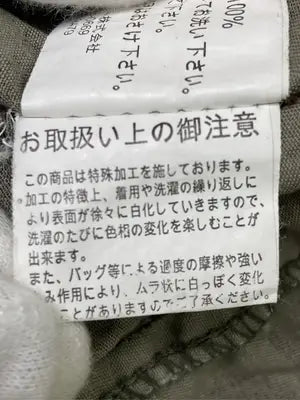 100%
てお洗い下さい。
はお避け下さい。
株式会社
6669
お取扱い上の御注意
この商品は特殊加工を施しております。
加工の特徴上、着用や洗濯の繰り返しに
より表面が徐々に白化していきますので、
洗濯のたびに色相の変化を楽しむことが
出来ます。
また、バッグ等による過度の摩擦や強い
み作用により、ムラ状に白っぽく変化
ことがありますのでご了承ください。